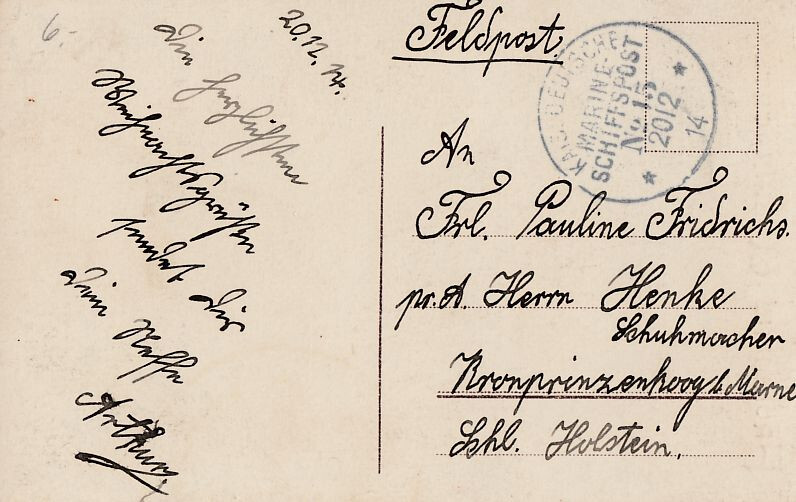 6.-
20.12.14.
Die herzlichsten
Weihnachtsgrüßen
sendet dir
dein Neffe
Arthur.
Feldpost.
KAIS. DEUTSCHE
MARINE-
SCHIFFSPOST
No 15
20 12
14
An
Frl. Pauline Fridrichs.
pr. A. Herrn Henke
Schuhmacher
Kronprinzenkoog b. Marne
Schl. Holstein.